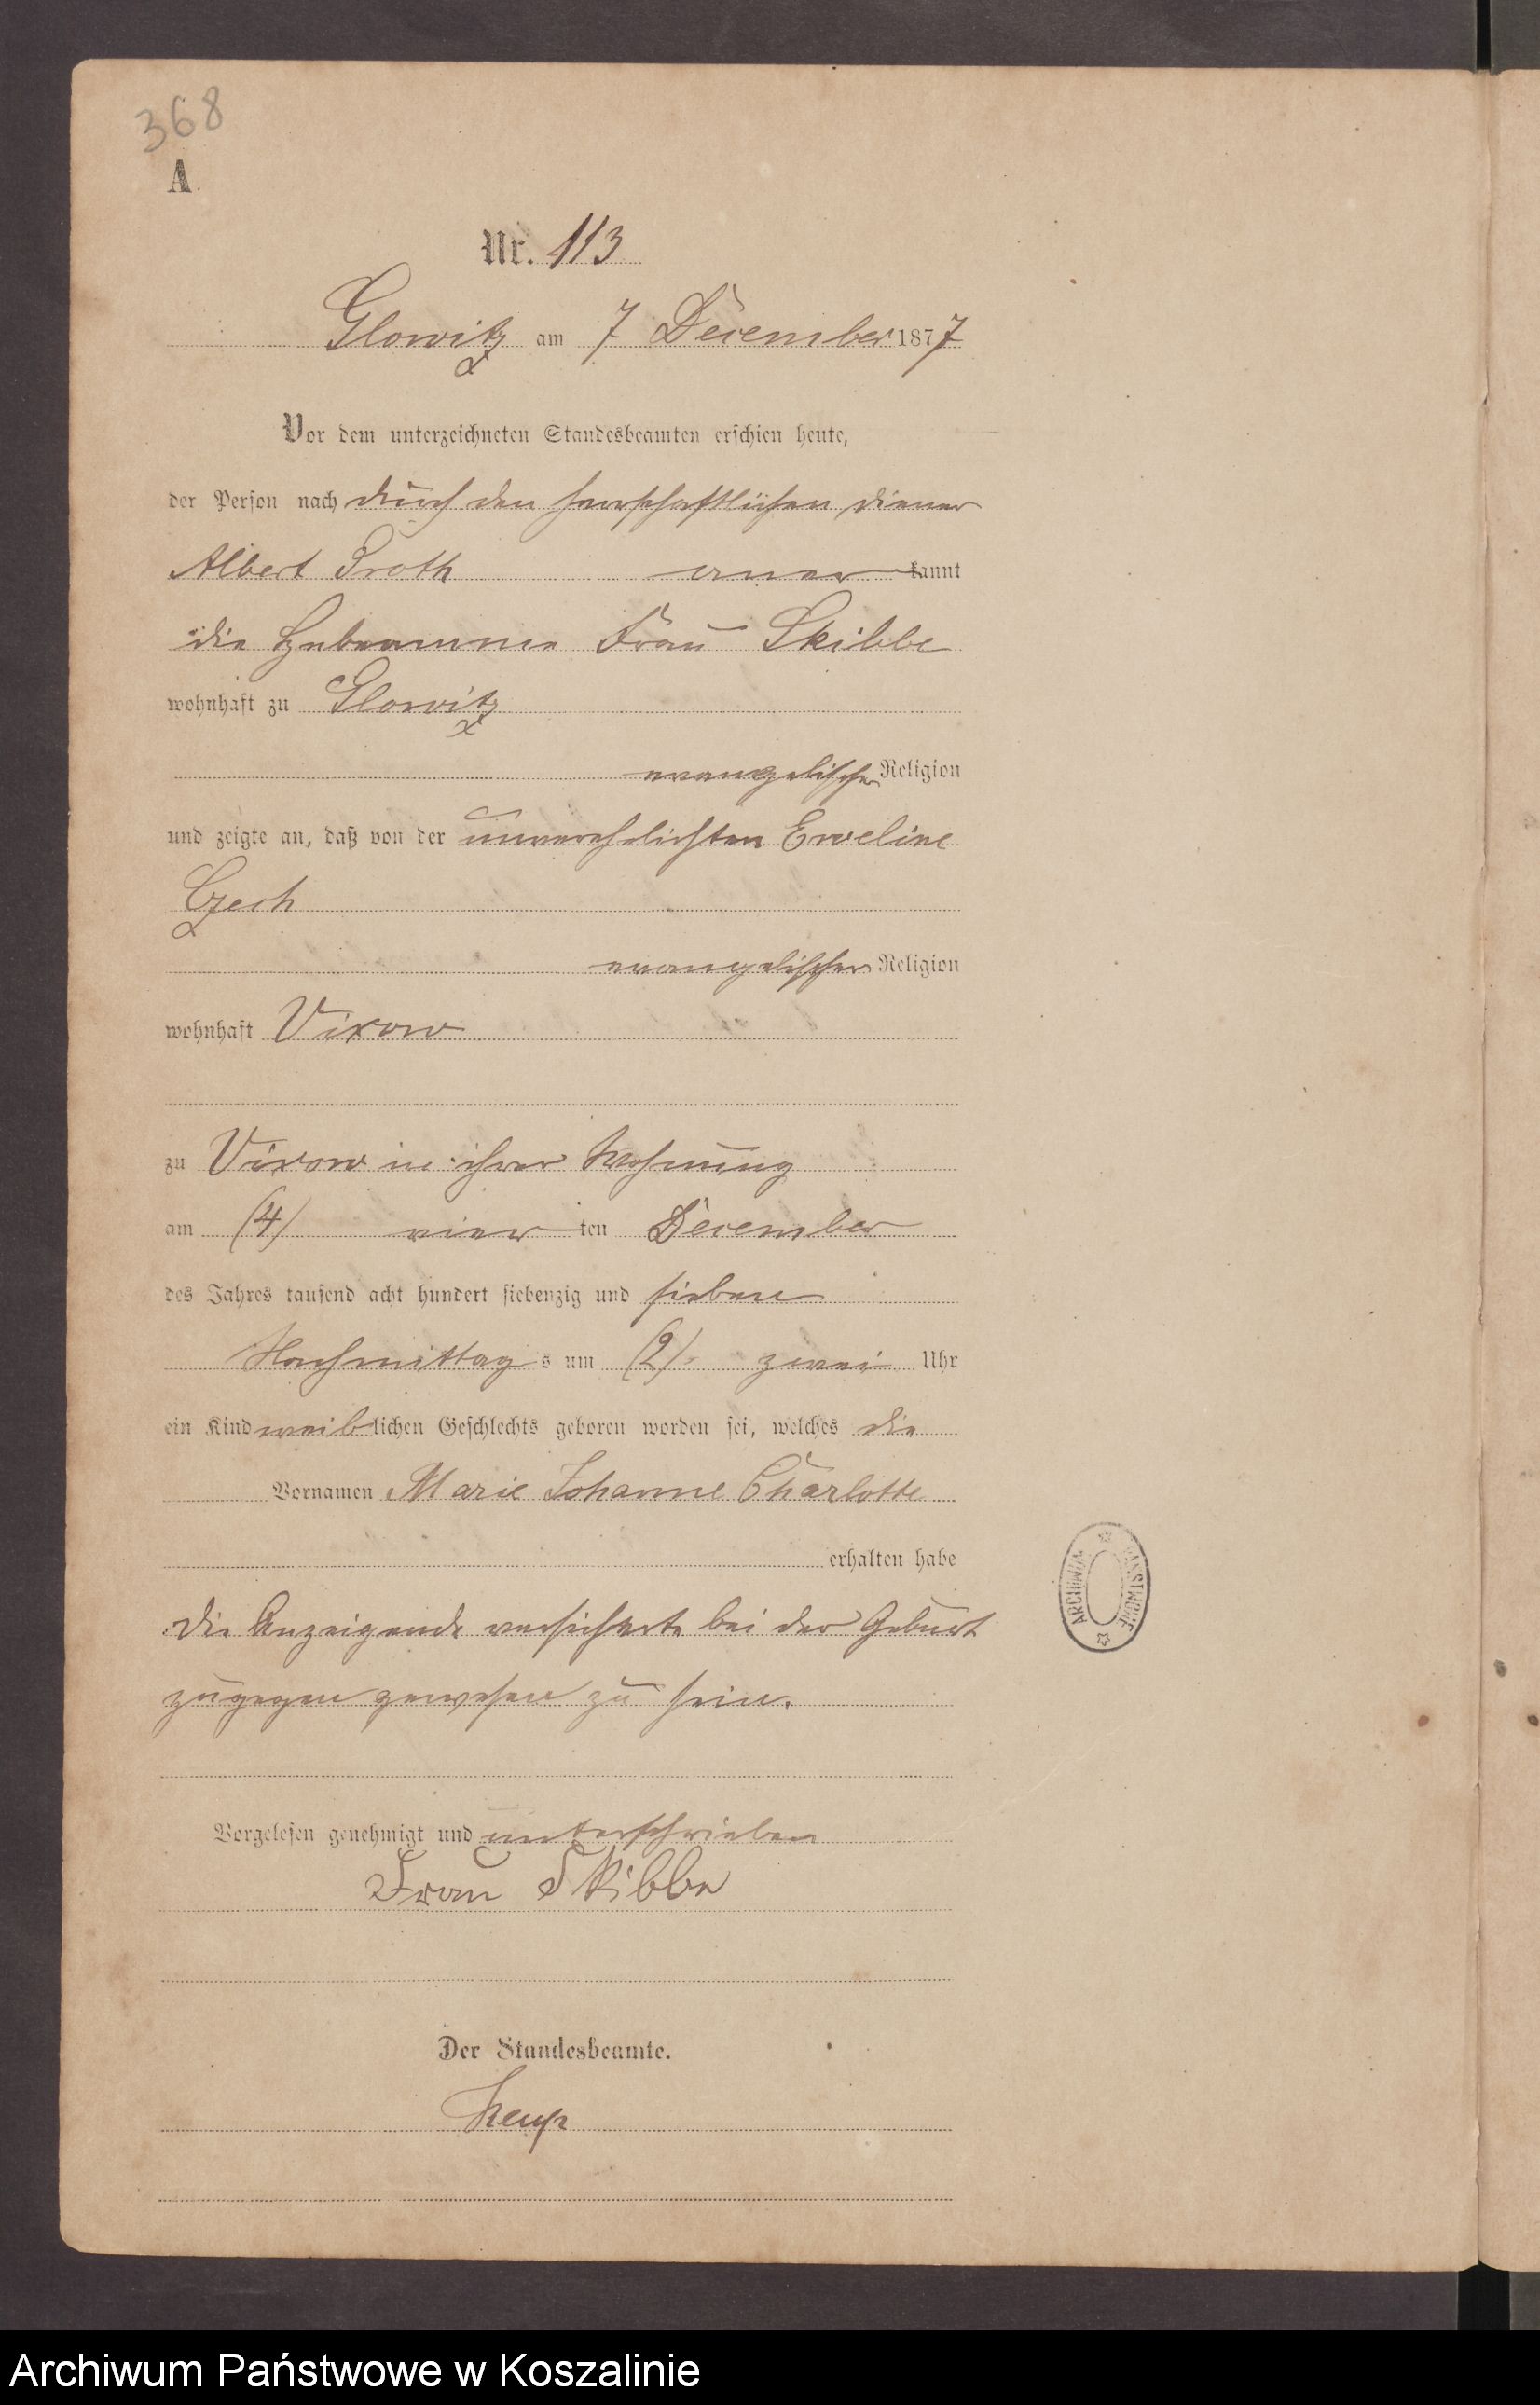 368
A.
Nr. 113
Glowitz am 7 December 1877
Vor dem unterzeichneten Standesbeamten erschien heute,
der Person nach durch den herrschaftlichen Diener
Albert Proth anerkannt
die Hebeamme Frau Skibbe
wohnhaft zu Glowitz
evangelischer Religion
und zeigte an, daß von der unverehelichten Eveline
Czech
evangelischer Religion
wohnhaft Vixow
zu Vixow in ihrer Wohnung
am (4) vierten December
des Jahres tausend acht hundert siebenzig und sieben
Nachmittags um (2) zwei Uhr
ein Kind weiblichen Geschlechts geboren worden sei, welches die
Vornamen Marie Johanne Charlotte
erhalten habe
ARCHIWUM PAŃSTWOWE
Die Anzeigende versicherte bei der Geburt
zugegen gewesen zu sein.
Vorgelesen genehmigt und unterschrieben
Frau Skibbe
Der Standesbeamte.
Archiwum Państwowe w Koszalinie